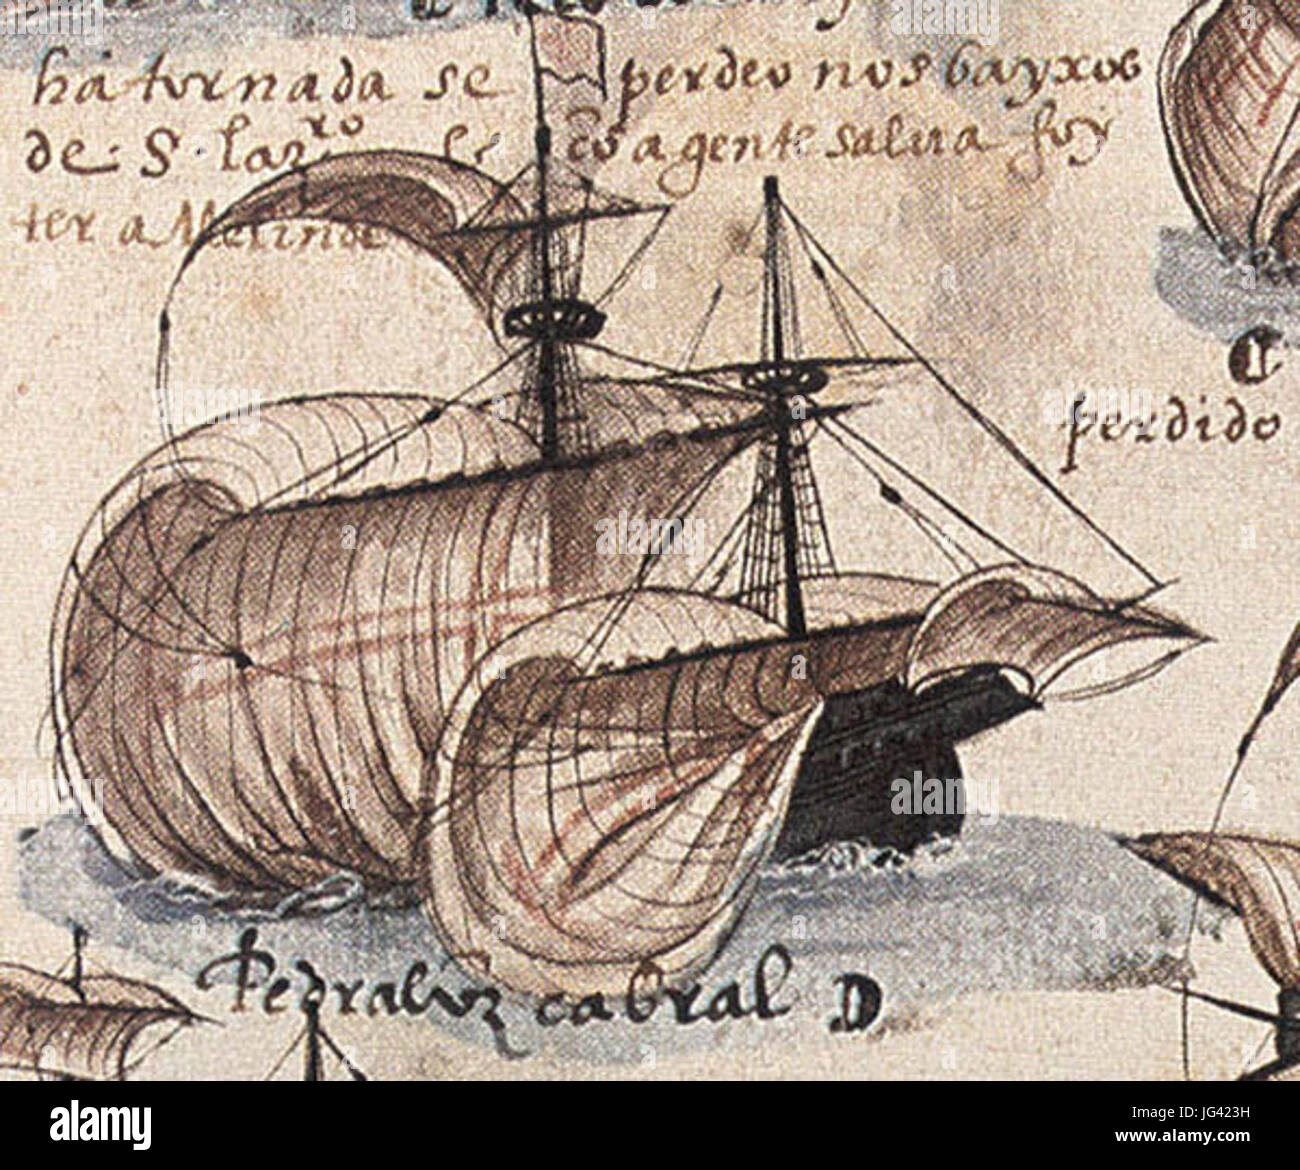 ha tornada se perdeo nos bayxos
de · S · lazro co a gente salua foy
ter a Melinde
perdido
Pedraluz cabral D
alamy stock photo
alamy
JG423H
www.alamy.com